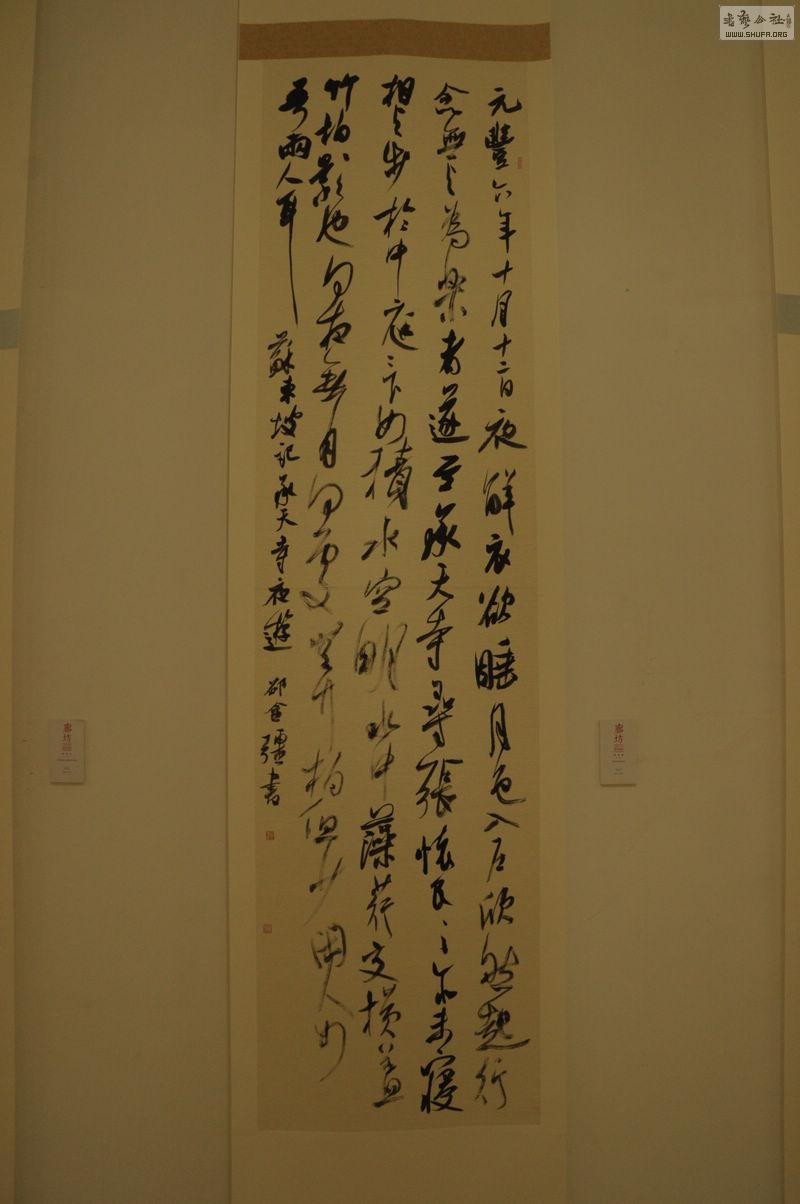 元豐六年十月十二日夜解衣欲睡月色入戶欣然起行
念無与為樂者遂至承天寺尋張懷民〻亦未寢
相与步於中庭〻下如積水空明水中藻荇交橫蓋
竹柏影也何夜無月何處無竹柏但少閑人如
吾兩人耳
蘇東坡記承天寺夜遊
書
書藝公社
WWW.SHUFA.ORG
廊坊
廊坊